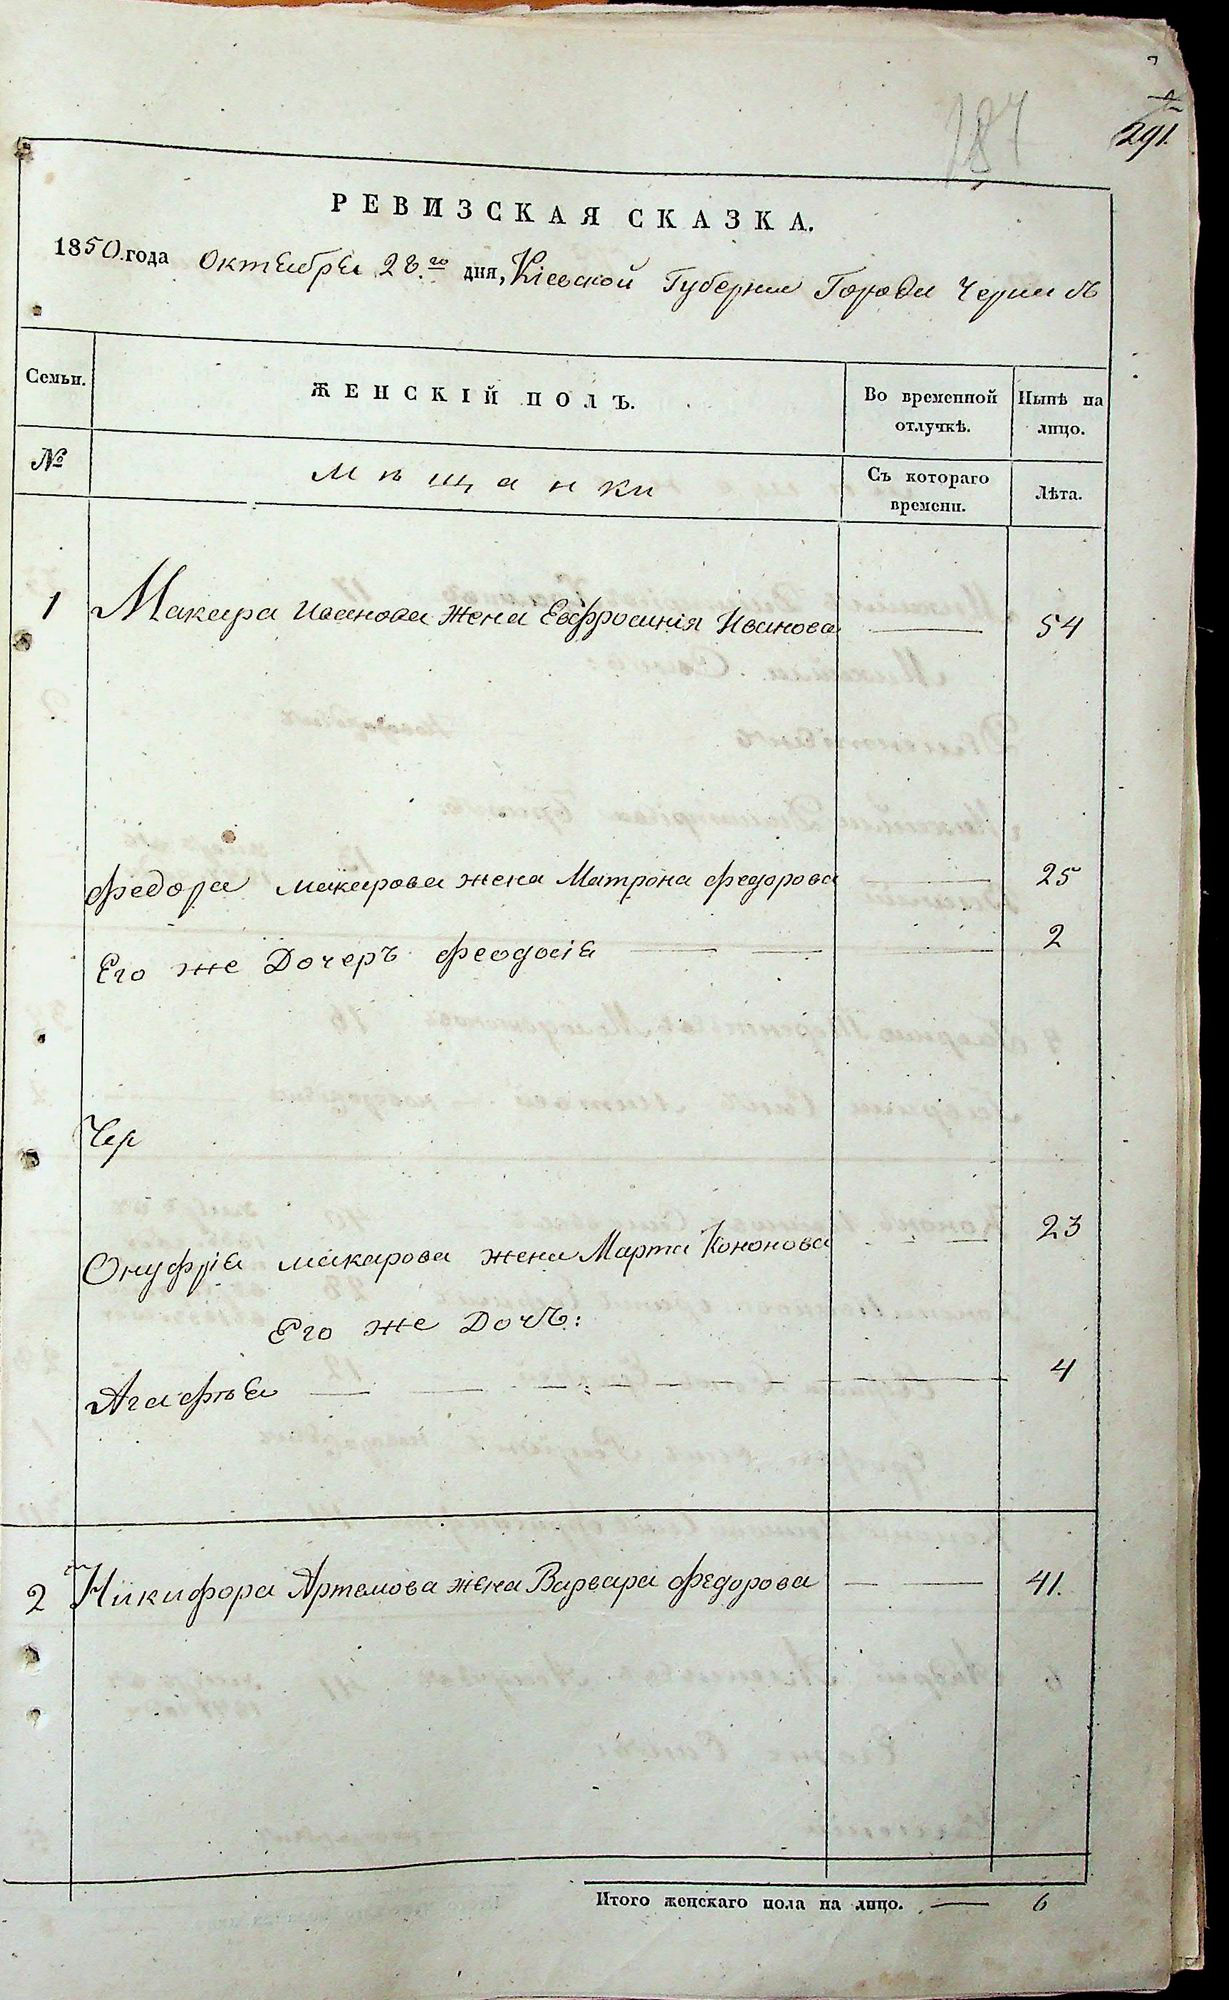 291.
РЕВИЗСКАЯ СКАЗКА.
1850.года Октября 28.го дня, Кіевской Губерніи Города
Семьи.
ЖЕНСКІЙ ПОЛЪ.
Во временной отлучкѣ.
Нынѣ на лицо.
№
Мѣщанки
Съ котораго времени.
Лѣта.
1 Макара Иванова жена Евфросинія Иванова — 54
Федора Макарова жена Матрона Федорова — 25
Его же Дочеръ Феодосія — — — 2
Чер
Онуфрія Макарова жена Марта Кононова — 23
Его же Дочь:
Агафія — — — — — — — 4
2 Никифора Артемова жена Варвара Федорова — — 41.
Итого женскаго пола на лицо. — 6